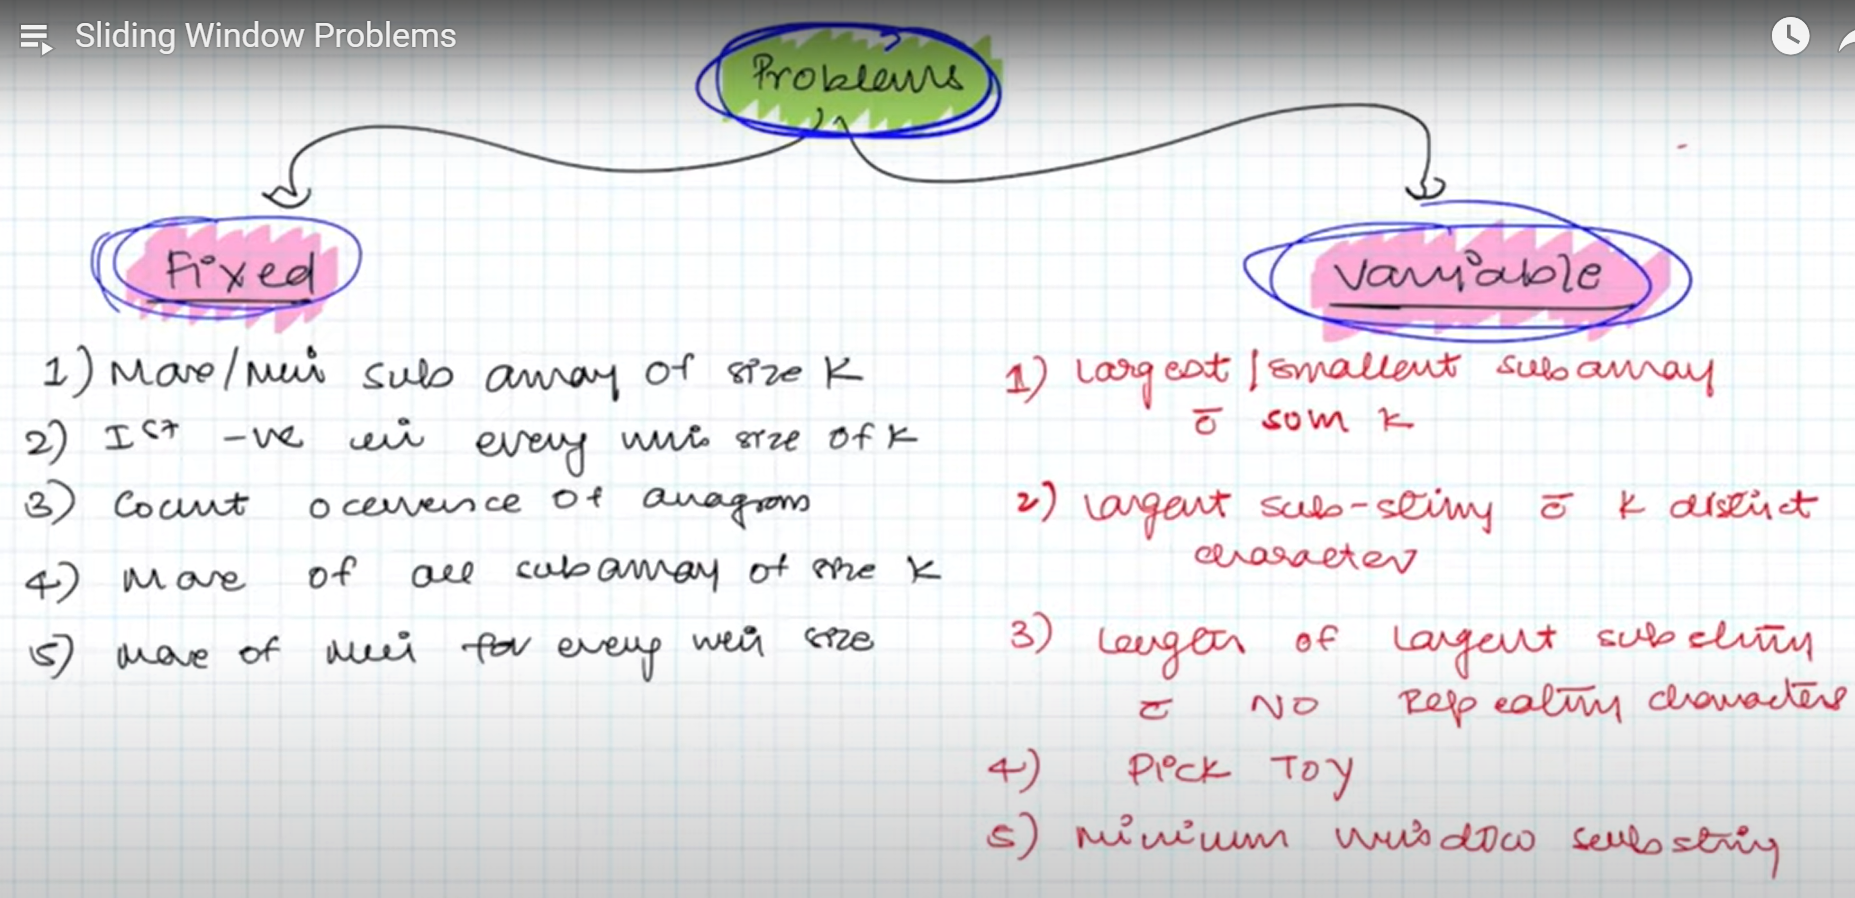 Sliding Window Problems
Problems
Fixed
1) Max/Min sub array of size K
2) Ist -ve in every win size of K
3) Count occurence of anagram
4) Max of all subarray of size K
5) Max of Min for every win size
Variable
1) Largest / smallest subarray
c̄ sum K
2) Largest sub-string c̄ K distinct
character
3) Length of largest substring
c̄ NO Repeating characters
4) Pick Toy
5) Minimum window substring